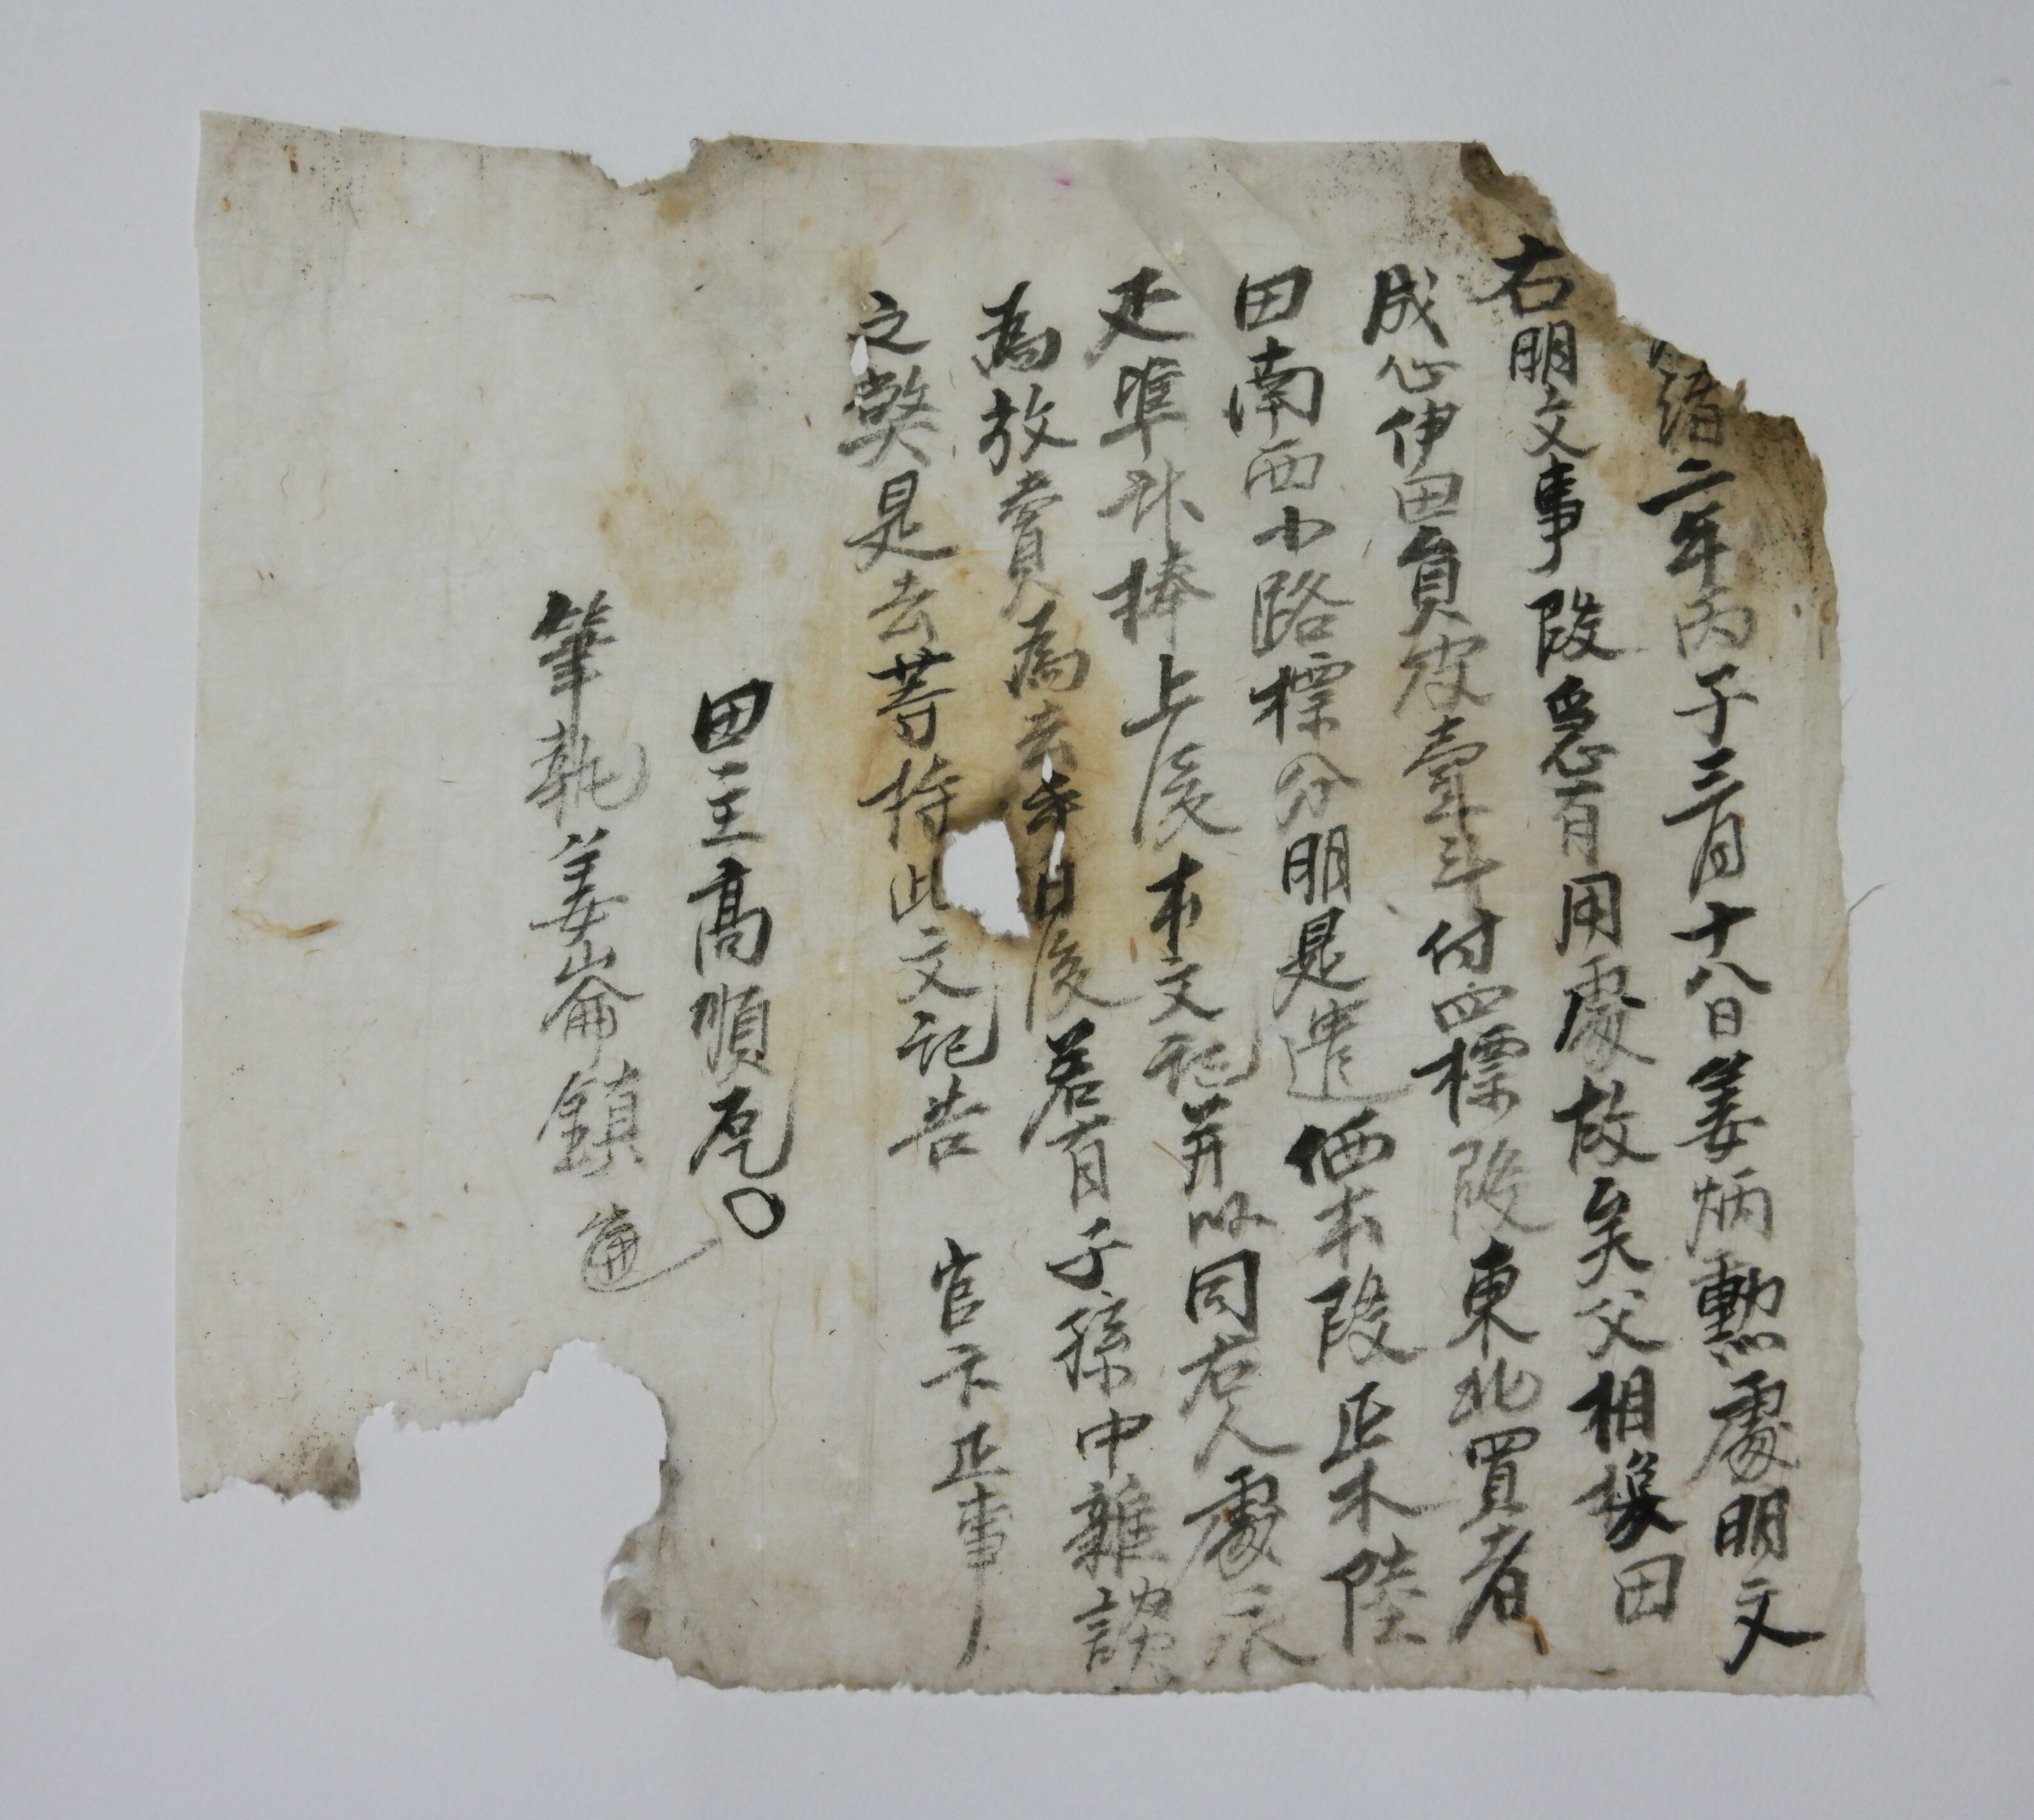 緖二年丙子三月十八日姜炳勳處明文
右明文事段急有用處故矣父相換田
成心伊田負皮壹斗付四標段東北買者
田南西小路標分明是遣価本段正木陸
疋準計捧上後本文記并以同右人處永
爲放賣爲去乎日後若有子孫中雜談
之獘是去等持此文記告 官卞正事
田主高順尾
筆執姜崙鎮